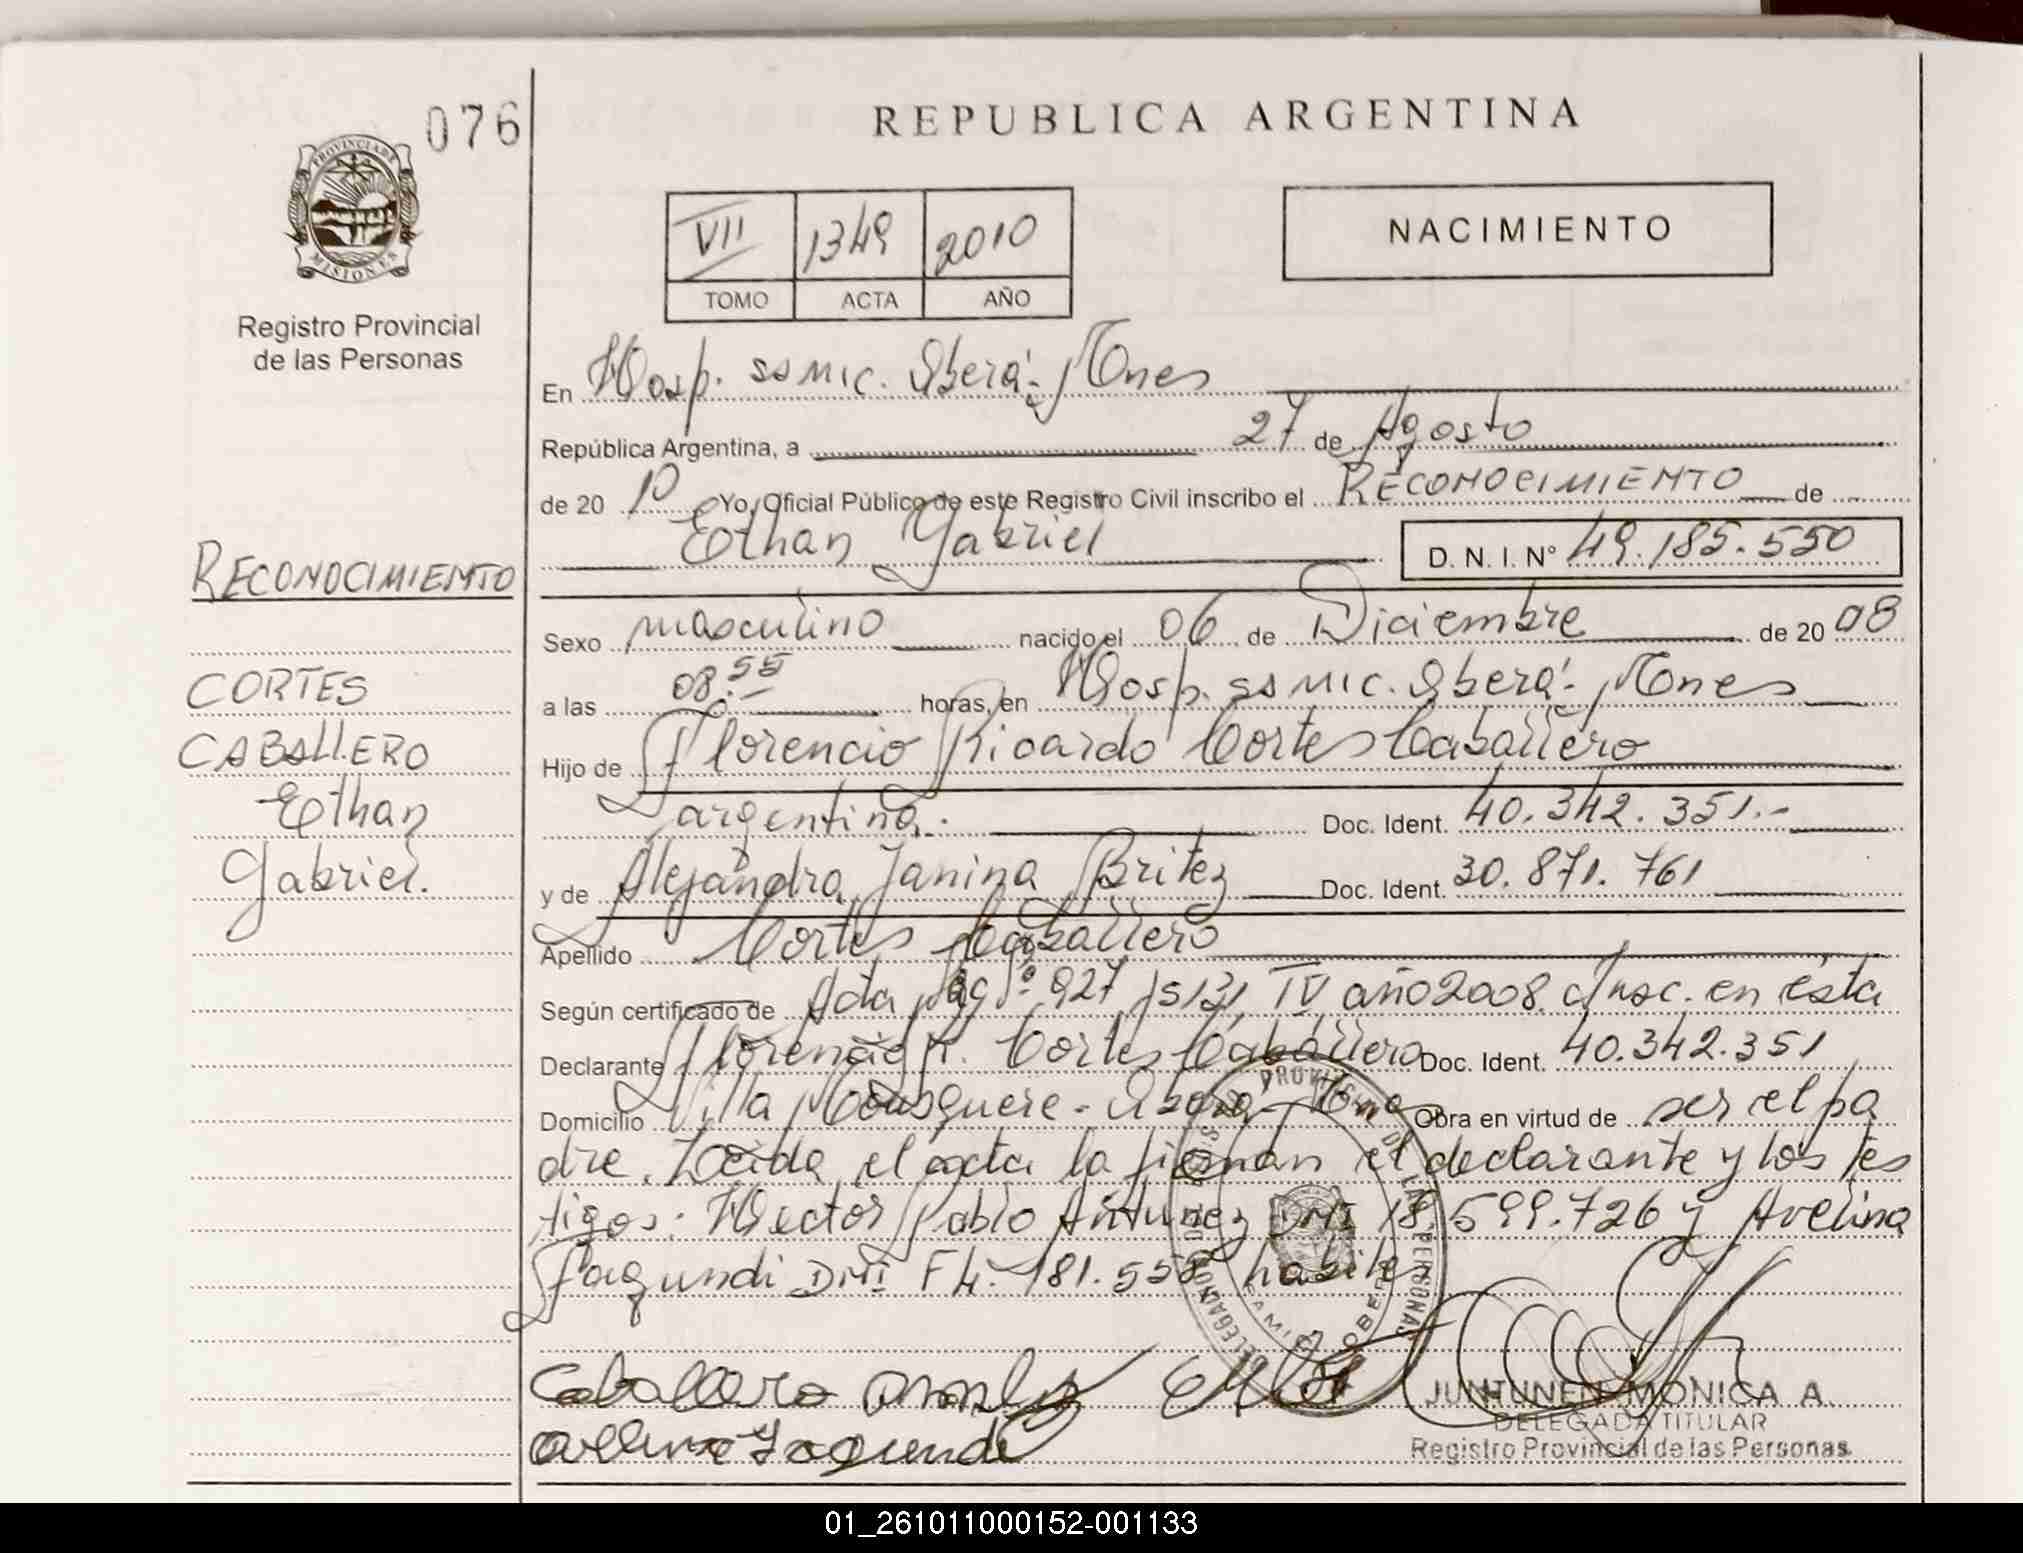 076
REPUBLICA ARGENTINA
PROVINCIA DE
MISIONES
Registro Provincial
de las Personas
VII 1349 2010
TOMO ACTA AÑO
NACIMIENTO
En Hosp. SAMIC. Oberá- Mnes
República Argentina, a 27 de Agosto
de 20 10 Yo, Oficial Público de este Registro Civil inscribo el RECONOCIMIENTO de
Ethan Gabriel D. N. I. Nº 49.185.550
RECONOCIMIENTO
Sexo masculino nacido el 06 de Diciembre de 20 08
a las 08.55 horas, en Hosp. SAMIC. Oberá- Mnes
CORTES
CABALLERO
Ethan
Gabriel.
Hijo de Florencio Ricardo Cortes Caballero
argentina. Doc. Ident. 40.342.351.-
y de Alejandra Janina Britez Doc. Ident. 30.871.761
Apellido Cortes Caballero
Según certificado de Acta Nº 927, IV año 2008. Insc. en ésta
Declarante Florencio R. Cortes Caballero Doc. Ident. 40.342.351
Domicilio Villa - Oberá- Mnes Obra en virtud de ser el pa
dre. Leída el acta la firman el declarante y los tes
tigos: Hector Pablo Antunez DNI 18.599.726 y Avelina
Fagundi DNI F 4.181.558 habiles
PROVINCIAL DE LAS PERSONAS
JUNTUNEN MONICA A.
DELEGADA TITULAR
Registro Provincial de las Personas
Caballero
Avelina Fagundi
01_261011000152-001133